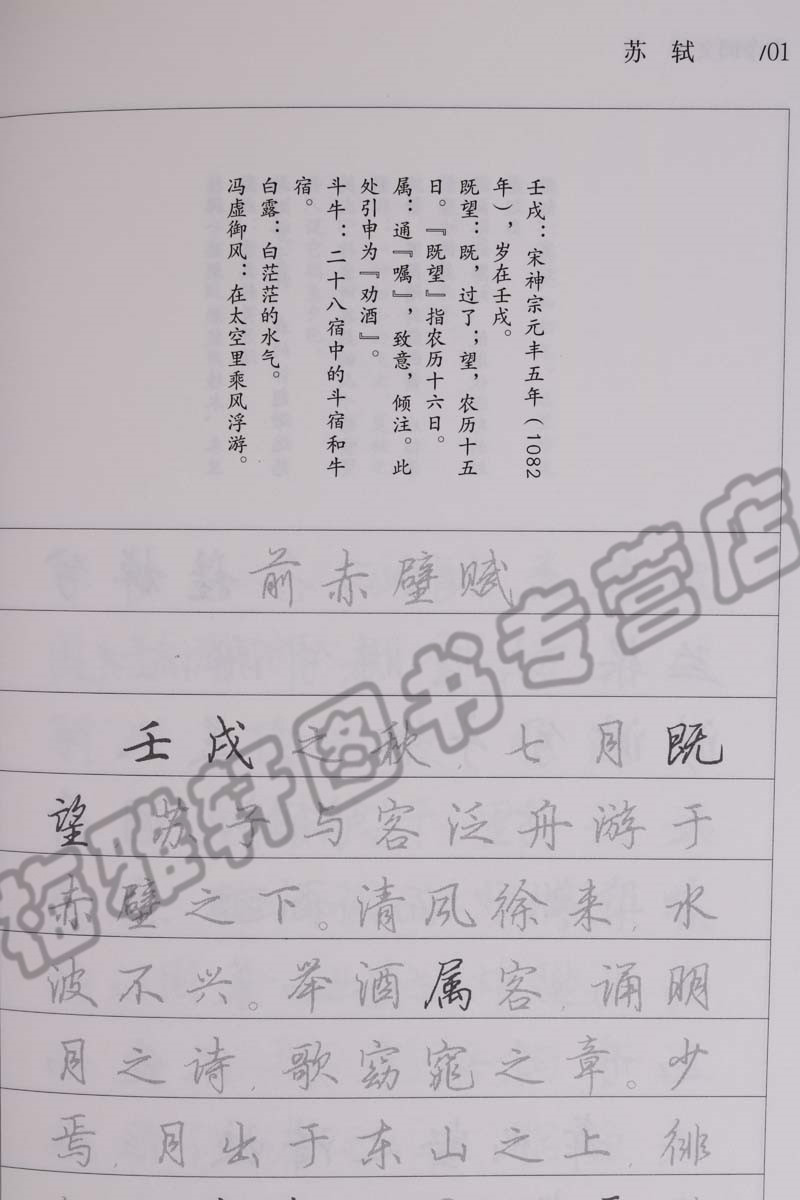 苏 轼 /01
壬戌：宋神宗元丰五年（1082
年），岁在壬戌。
既望：既，过了；望，农历十五
日。『既望』指农历十六日。
属：通『嘱』，致意，倾注。此
处引申为『劝酒』。
斗牛：二十八宿中的斗宿和牛
宿。
白露：白茫茫的水气。
冯虚御风：在太空里乘风浮游。
前赤壁赋
壬戌之秋，七月既
望，苏子与客泛舟游于
赤壁之下。清风徐来，水
波不兴。举酒属客，诵明
月之诗，歌窈窕之章。少
焉，月出于东山之上，徘
雅轩图书专营店